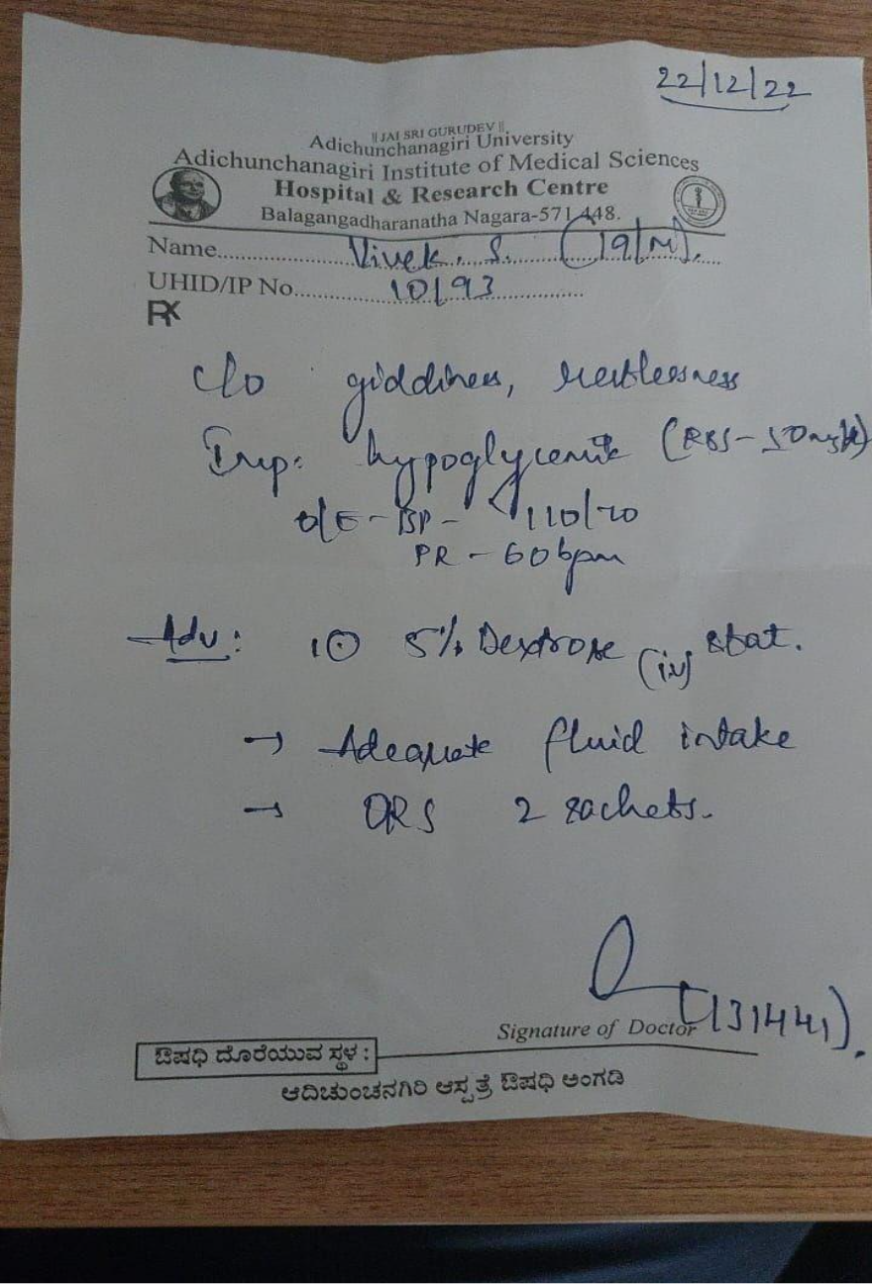 22/12/22
|| JAI SRI GURUDEV ||
Adichunchanagiri University
Adichunchanagiri Institute of Medical Sciences
Hospital & Research Centre
Balagangadharanatha Nagara-571 448.
Name.......... Vivek. S. (19/M).
UHID/IP No.......... 10193
Rx
c/o giddiness, restlessness
Imp: hypoglycemic (RBS-50mg/dl)
O/E - BP - 110/70
PR - 60bpm
Adv: 5% Dextrose (iv) stat.
→ Adequate fluid intake
→ ORS 2 sachets.
Signature of Doctor (131441).
ಔಷಧಿ ದೊರೆಯುವ ಸ್ಥಳ :
ಆದಿಚುಂಚನಗಿರಿ ಆಸ್ಪತ್ರೆ ಔಷಧಿ ಅಂಗಡಿ